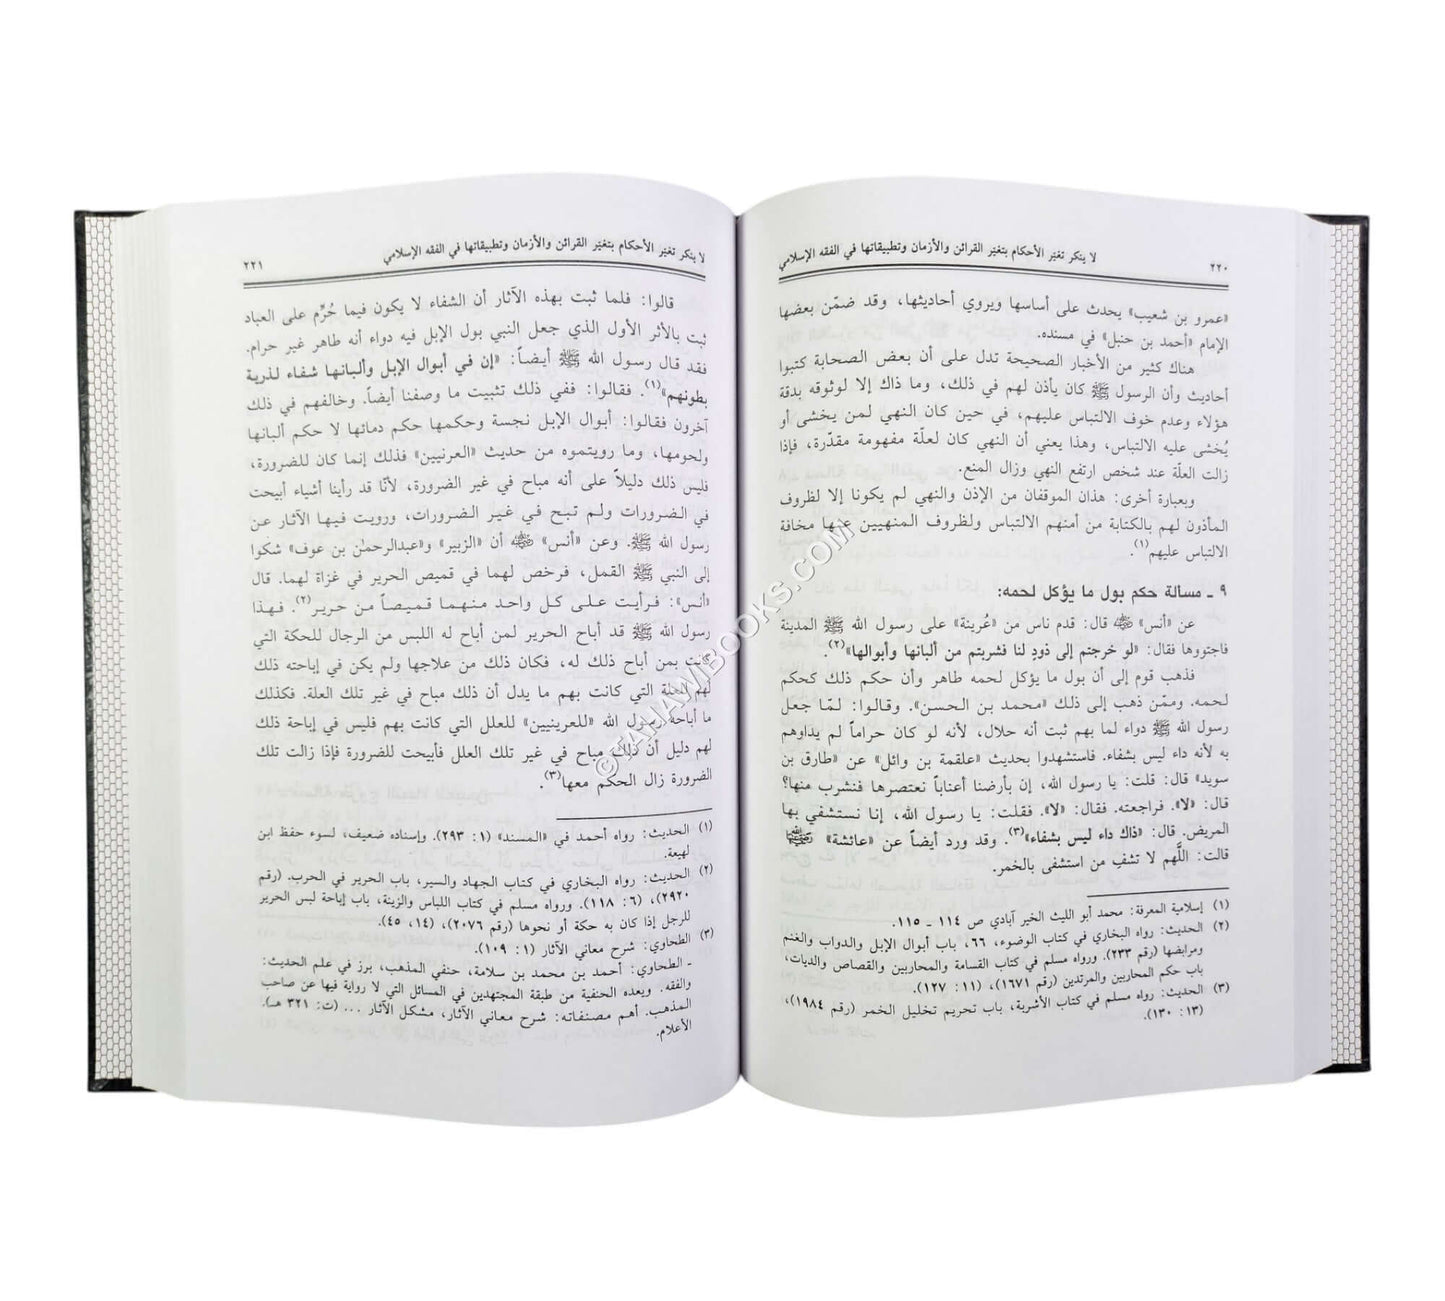 ٢٢٠
لا ينكر تغيّر الأحكام بتغيّر القرائن والأزمان وتطبيقاتها في الفقه الإسلامي
«عمرو بن شعيب» يحدث على أساسها ويروي أحاديثها، وقد ضمّن بعضها
الإمام «أحمد بن حنبل» في مسنده.
هناك كثير من الأخبار الصحيحة تدل على أن بعض الصحابة كتبوا
أحاديث وأن الرسول ﷺ كان يأذن لهم في ذلك، وما ذاك إلا لوثوقه بدقة
هؤلاء وعدم خوف الالتباس عليهم، في حين كان النهي لمن يخشى أو
يُخشى عليه الالتباس، وهذا يعني أن النهي كان لعلّة مفهومة مقدّرة، فإذا
زالت العلّة عند شخص ارتفع النهي وزال المنع.
وبعبارة أخرى: هذان الموقفان من الإذن والنهي لم يكونا إلا لظروف
المأذون لهم بالكتابة من أمنهم الالتباس ولظروف المنهيين عنها مخافة
الالتباس عليهم(١).
٩ ـ مسألة حكم بول ما يؤكل لحمه:
عن «أنس» ﷺ قال: قدم ناس من «عُرينة» على رسول الله ﷺ المدينة
فاجتووها فقال: «لو خرجتم إلى ذودٍ لنا فشربتم من ألبانها وأبوالها»(٢).
فذهب قوم إلى أن بول ما يؤكل لحمه طاهر وأن حكم ذلك كحكم
لحمه. وممّن ذهب إلى ذلك «محمد بن الحسن». وقالوا: لمّا جعل
رسول الله ﷺ دواء لما بهم ثبت أنه حلال، لأنه لو كان حراماً لم يداوهم
به لأنه داء ليس بشفاء. فاستشهدوا بحديث «علقمة بن وائل» عن «طارق بن
سويد» قال: قلت: يا رسول الله، إن بأرضنا أعناباً نعتصرها فنشرب منها؟
قال: «لا». فراجعته. فقال: «لا». فقلت: يا رسول الله، إنا نستشفي بها
المريض. قال: «ذاك داء ليس بشفاء»(٣). وقد ورد أيضاً عن «عائشة»
قالت: اللَّهم لا تشفِ من استشفى بالخمر.
(١) إسلامية المعرفة: محمد أبو الليث الخير آبادي ص ١١٤ ـ ١١٥.
(٢) الحديث: رواه البخاري في كتاب الوضوء، ٦٦، باب أبوال الإبل والدواب والغنم
ومرابضها (رقم ٢٣٣). ورواه مسلم في كتاب القسامة والمحاربين والقصاص والديات،
باب حكم المحاربين والمرتدين (رقم ١٦٧١)، (١١: ١٢٧).
(٣) الحديث: رواه مسلم في كتاب الأشربة، باب تحريم تخليل الخمر (رقم ١٩٨٤)،
(١٣: ١٣٠).
لا ينكر تغيّر الأحكام بتغيّر القرائن والأزمان وتطبيقاتها في الفقه الإسلامي
٢٢١
قالوا: فلما ثبت بهذه الآثار أن الشفاء لا يكون فيما حُرِّم على العباد
ثبت بالأثر الأول الذي جعل النبي بول الإبل فيه دواء أنه طاهر غير حرام.
فقد قال رسول الله ﷺ أيضاً: «إن في أبوال الإبل وألبانها شفاء لذرية
بطونهم»(١). فقالوا: ففي ذلك تثبيت ما وصفنا أيضاً. وخالفهم في ذلك
آخرون فقالوا: أبوال الإبل نجسة وحكمها حكم دمائها لا حكم ألبانها
ولحومها، وما رويتموه من حديث «العرنيين» فذلك إنما كان للضرورة،
فليس ذلك دليلاً على أنه مباح في غير الضرورة، لأنّا قد رأينا أشياء أبيحت
في الضرورات ولم تبح في غير الضرورات، ورويت فيها الآثار عن
رسول الله ﷺ. وعن «أنس» أن «الزبير» و«عبدالرحمٰن بن عوف» شكوا
إلى النبي ﷺ القمل، فرخص لهما في قميص الحرير في غزاة لهما. قال
«أنس»: فرأيت على كل واحد منهما قميصاً من حرير(٢). فهذا
رسول الله ﷺ قد أباح الحرير لمن أباح له اللبس من الرجال للحكة التي
كانت بمن أباح ذلك له، فكان ذلك من علاجها ولم يكن في إباحته ذلك
لهم للعلة التي كانت بهم ما يدل أن ذلك مباح في غير تلك العلة. فكذلك
ما أباحه رسول الله «للعرينيين» للعلل التي كانت بهم فليس في إباحة ذلك
لهم دليل أن ذلك مباح في غير تلك العلل فأبيحت للضرورة فإذا زالت تلك
الضرورة زال الحكم معها(٣).
(١) الحديث: رواه أحمد في «المسند» (١: ٢٩٣). وإسناده ضعيف، لسوء حفظ ابن
لهيعة.
(٢) الحديث: رواه البخاري في كتاب الجهاد والسير، باب الحرير في الحرب. (رقم
٢٩٢٠)، (٦: ١١٨). ورواه مسلم في كتاب اللباس والزينة، باب إباحة لبس الحرير
للرجل إذا كان به حكة أو نحوها (رقم ٢٠٧٦)، (١٤، ٤٥).
(٣) الطحاوي: شرح معاني الآثار (١: ١٠٩).
ـ الطحاوي: أحمد بن محمد بن سلامة، حنفي المذهب، برز في علم الحديث:
والفقه. ويعده الحنفية من طبقة المجتهدين في المسائل التي لا رواية فيها عن صاحب
المذهب. أهم مصنفاته: شرح معاني الآثار، مشكل الآثار ... (ت: ٣٢١ هـ).
الأعلام.